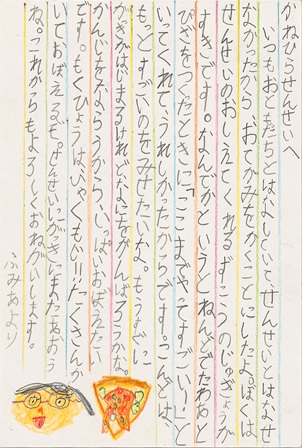 かねひらせんせいへ
いつもおともだちとはなしていて、せんせいとはなせ
なかったから、おてがみをかくことにしたよ。ぼくは、
せんせいのおしえてくれるずこーのじゅぎょうが
すきです。なんでかというと、ねんどでたわあと
ぴざをつくたときに「ここまでやてすごいー!」と
いてくれて、うれしかったからです。こんどは、
もっとすごいのをみせたいな。もうすぐに
がっきがはじまるけれどなにをがんばろうかな。
かんじをならうから、いっぱいおぼえたい
です。もくひょうはひゃくもじ!!たくさんか
いておぼえるぞ。せんせい、にがきにまたあおう
ね。これからもよろしくおねがいします。
ふみあより